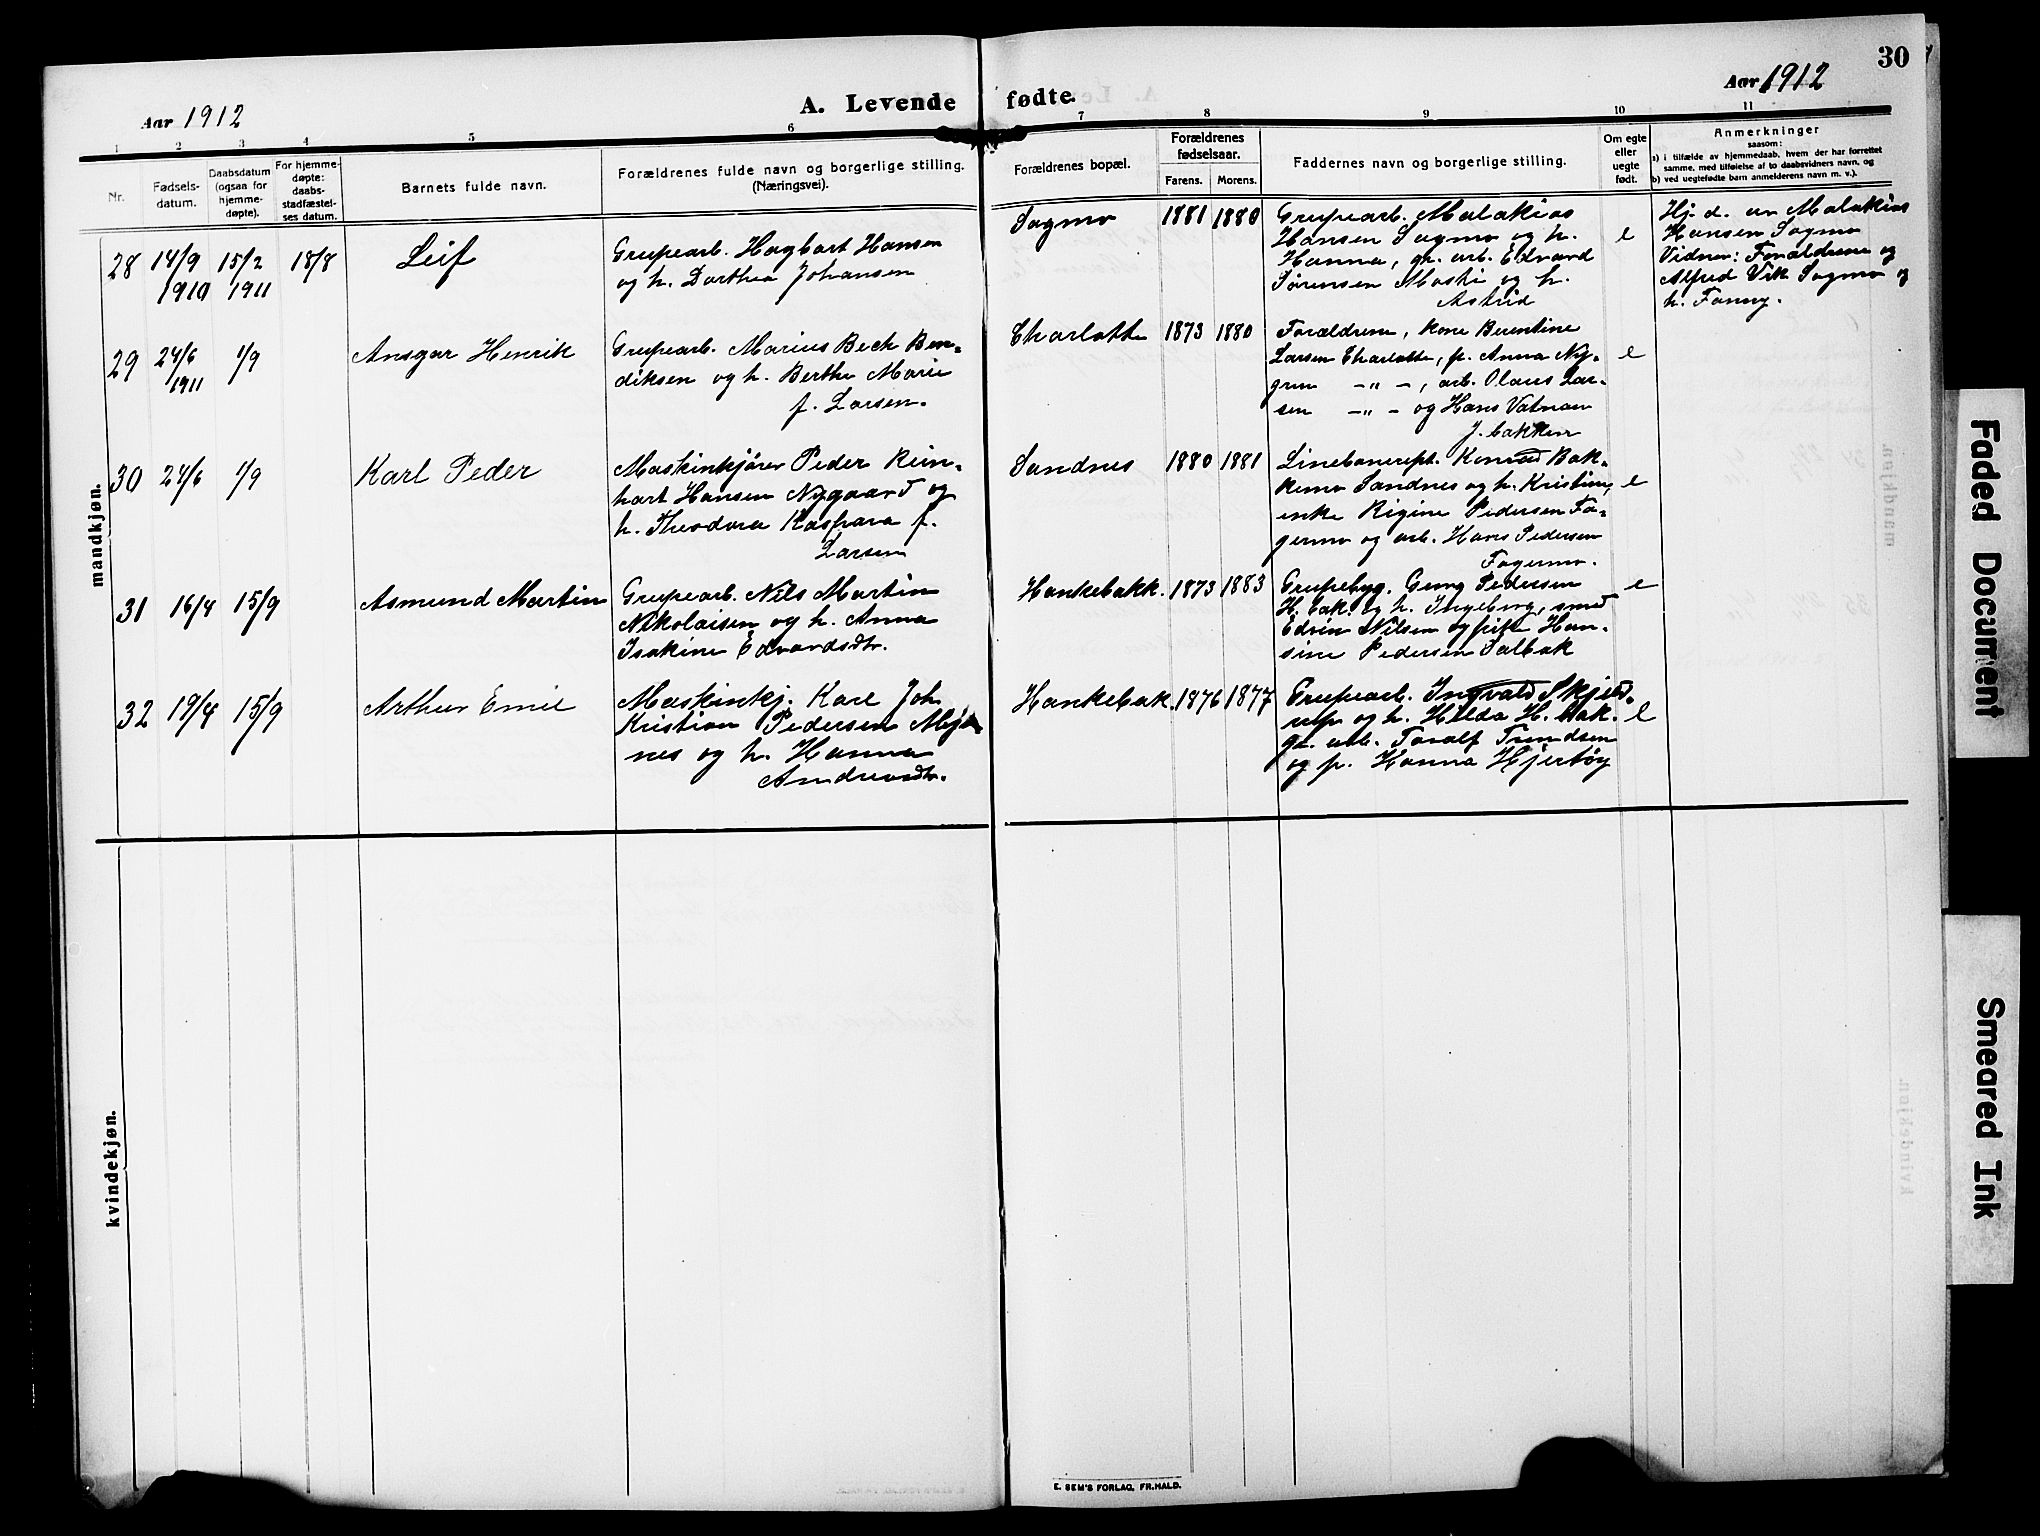 30
Aar 1912
A. Levende fødte.
Aar 1912
1 2 3 4 5 6 7 8 9 10 11
Nr.
Fødsels-
datum.
Daabsdatum
(ogsaa for
hjemme-
døpte).
For hjemme-
døpte:
daabs-
stadfæstel-
ses datum.
Barnets fulde navn.
Forældrenes fulde navn og borgerlige stilling.
(Næringsvei).
Forældrenes bopæl.
Forældrenes
fødselsaar.
Farens. Morens.
Faddernes navn og borgerlige stilling.
Om egte
eller
uegte
født.
Anmerkninger
saasom:
a) i tilfælde av hjemmedaab, hvem der har forrettet
samme, med tilføielse af to daabsvidners navn, og
b) ved uegtefødte barn anmelderens navn m. v.).
mandkjøn.
28 14/9 15/2 18/8 Leif
1910 1911
Grupearb. Hagbart Hansen
og h. Dorthea Johansen
Sagmo 1881 1880
Grupearb. Malakias
Hansen Sagmo og h.
Hanna, gr. arb. Edvard
Sørensen Mosti og h.
Astrid
e
Hj. d. av Malakias
Hansen Sagmo
Vidner: Forældrene og
Alfred Vik Sagmo og
h. Fanny.
29 24/6 1/9 Ansgar Henrik
1911
Grupearb. Marius Bech Ben-
diksen og h. Berthe Marie
f. Larsen.
Charlotte 1873 1880
Forældrene, kone Berentine
Larsen Charlotte, p. Anna Ny-
gren -"-, arb. Olaus Lar-
sen -"- og Hans Vatnan
J. bakken
e
30 24/6 1/9 Karl Peder
Maskinkjører Peder Rein-
hart Hansen Nygaard og
h. Theodora Kaspara f.
Larsen
Sandnes 1880 1881
Konrad Bak-
kemo Sandnes og h. Kristine,
enke Rigine Pedersen Fa-
germo og arb. Hans Pedersen
Fagermo.
e
31 16/4 15/9 Asmund Martin
Grupearb. Nils Martin
Nikolaisen og h. Anna
Isakine Edvardsdtr.
Hankebakk. 1873 1883
Grupebyg. Georg Pedersen
H. bak. og h. Ingeborg, smed
Edvin Nilsen og pike Han-
sine Pedersen Salbak
e
32 19/4 15/9 Arthur Emil
Maskinkj. Karl Joh.
Kristian Pedersen
nes og h. Hanna
Andreasdtr.
Hankebak. 1876 1877
Grupearb. Ingvald Skjeld-
rup og h. Hilda H. bak.
gr. arb. Toralf Trondsen
og p. Hanna Hjertøy
e
kvindekjøn.
E. SEM'S FORLAG, FR.HALD.
Faded Document
Smeared Ink